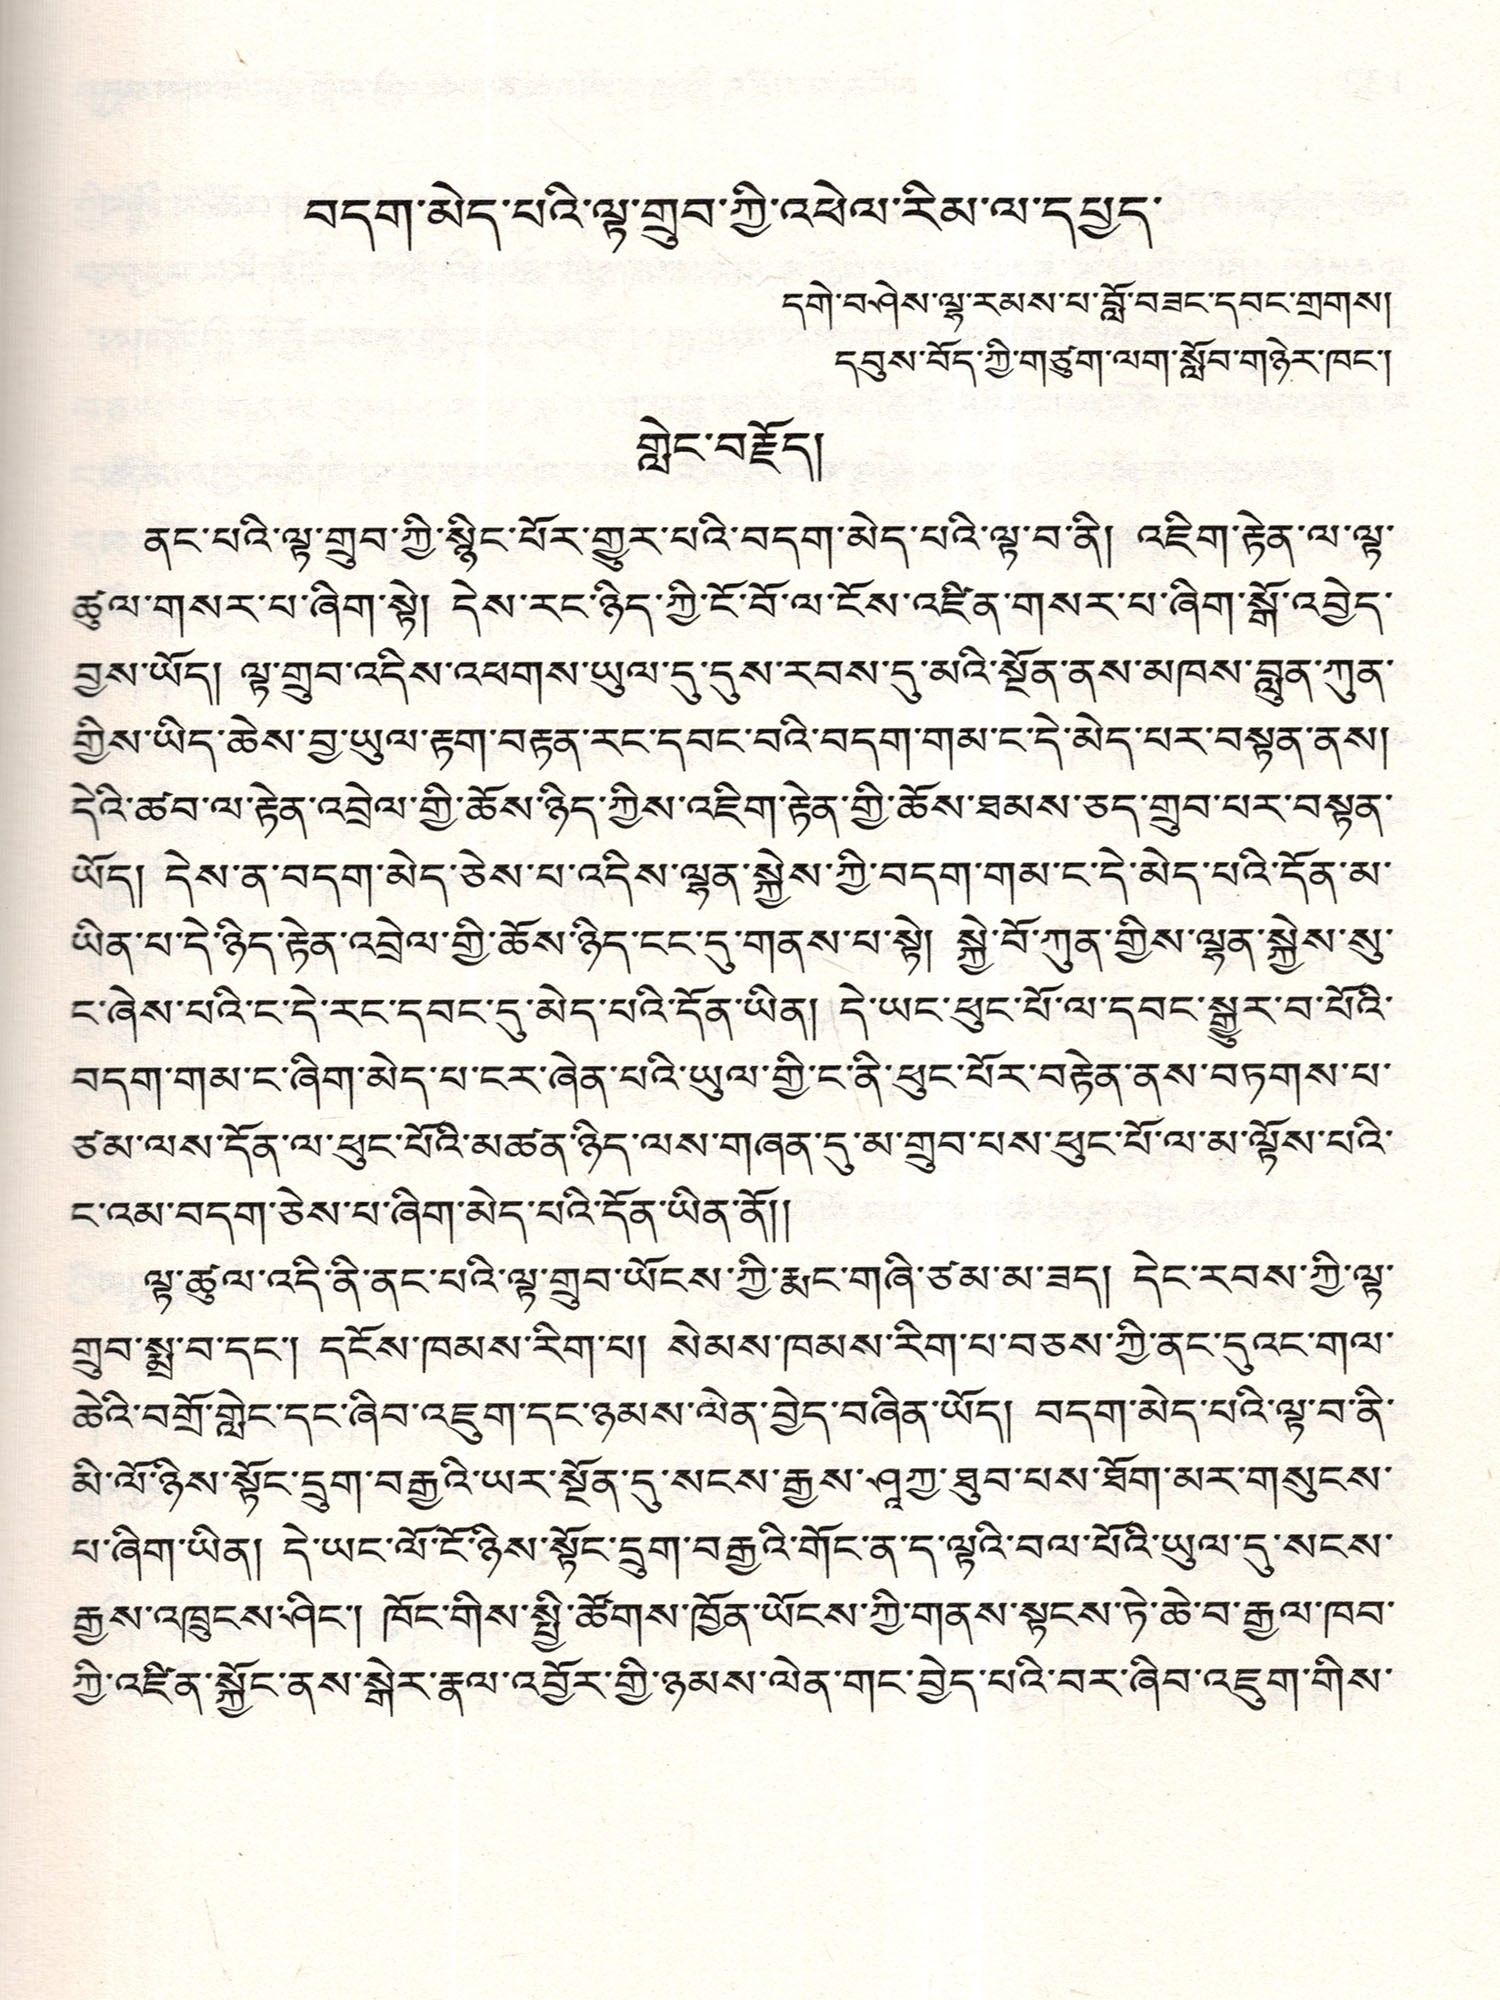 བདག་མེད་པའི་ལྟ་གྲུབ་ཀྱི་འཕེལ་རིམ་ལ་དཔྱད་
དགེ་བཤེས་ལྷ་རམས་པ་བློ་བཟང་དབང་གྲགས།
དབུས་བོད་ཀྱི་གཙུག་ལག་སློབ་གཉེར་ཁང་།
གླེང་བརྗོད།
ནང་པའི་ལྟ་གྲུབ་ཀྱི་སྙིང་པོར་གྱུར་པའི་བདག་མེད་པའི་ལྟ་བ་ནི། འཇིག་རྟེན་ལ་ལྟ་
ཚུལ་གསར་པ་ཞིག་སྟེ། དེས་རང་ཉིད་ཀྱི་ངོ་བོ་ལ་ངོས་འཛིན་གསར་པ་ཞིག་སྒོ་འབྱེད་
བྱས་ཡོད། ལྟ་གྲུབ་འདིས་འཕགས་ཡུལ་དུ་དུས་རབས་དུ་མའི་སྔོན་ནས་མཁས་བླུན་ཀུན་
གྱིས་ཡིད་ཆེས་བྱ་ཡུལ་རྟག་བརྟན་རང་དབང་བའི་བདག་གམ་ང་དེ་མེད་པར་བསྟན་ནས།
དེའི་ཚབ་ལ་རྟེན་འབྲེལ་གྱི་ཆོས་ཉིད་ཀྱིས་འཇིག་རྟེན་གྱི་ཆོས་ཐམས་ཅད་གྲུབ་པར་བསྟན་
ཡོད། དེས་ན་བདག་མེད་ཅེས་པ་འདིས་ལྷན་སྐྱེས་ཀྱི་བདག་གམ་ང་དེ་མེད་པའི་དོན་མ་
ཡིན་པ་དེ་ཉིད་རྟེན་འབྲེལ་གྱི་ཆོས་ཉིད་ངང་དུ་གནས་པ་སྟེ། སྐྱེ་བོ་ཀུན་གྱིས་ལྷན་སྐྱེས་སུ་
ང་ཞེས་པའི་ང་དེ་རང་དབང་དུ་མེད་པའི་དོན་ཡིན། དེ་ཡང་ཕུང་པོ་ལ་དབང་སྒྱུར་བ་པོའི་
བདག་གམ་ང་ཞིག་མེད་པ་ངར་ཞེན་པའི་ཡུལ་གྱི་ང་ནི་ཕུང་པོར་བརྟེན་ནས་བཏགས་པ་
ཙམ་ལས་དོན་ལ་ཕུང་པོའི་མཚན་ཉིད་ལས་གཞན་དུ་མ་གྲུབ་པས་ཕུང་པོ་ལ་མ་ལྟོས་པའི་
ང་འམ་བདག་ཅེས་པ་ཞིག་མེད་པའི་དོན་ཡིན་ནོ།།
ལྟ་ཚུལ་འདི་ནི་ནང་པའི་ལྟ་གྲུབ་ཡོངས་ཀྱི་རྨང་གཞི་ཙམ་མ་ཟད། དེང་རབས་ཀྱི་ལྟ་
གྲུབ་སྨྲ་བ་དང་། དངོས་ཁམས་རིག་པ། སེམས་ཁམས་རིག་པ་བཅས་ཀྱི་ནང་དུའང་གལ་
ཆེའི་བགྲོ་གླེང་དང་ཞིབ་འཇུག་དང་ཉམས་ལེན་བྱེད་བཞིན་ཡོད། བདག་མེད་པའི་ལྟ་བ་ནི་
མི་ལོ་ཉིས་སྟོང་དྲུག་བརྒྱའི་ཡར་སྔོན་དུ་སངས་རྒྱས་ཤཱཀྱ་ཐུབ་པས་ཐོག་མར་གསུངས་
པ་ཞིག་ཡིན། དེ་ཡང་ལོ་ངོ་ཉིས་སྟོང་དྲུག་བརྒྱའི་གོང་ན་ད་ལྟའི་བལ་པོའི་ཡུལ་དུ་སངས་
རྒྱས་འཁྲུངས་ཤིང་། ཁོང་གིས་སྤྱི་ཚོགས་ཁྱོན་ཡོངས་ཀྱི་གནས་སྟངས་ཏེ་ཆེ་བ་རྒྱལ་ཁབ་
ཀྱི་འཛིན་སྐྱོང་ནས་སྒེར་རྣལ་འབྱོར་གྱི་ཉམས་ལེན་གང་བྱེད་པའི་བར་ཞིབ་འཇུག་གིས་